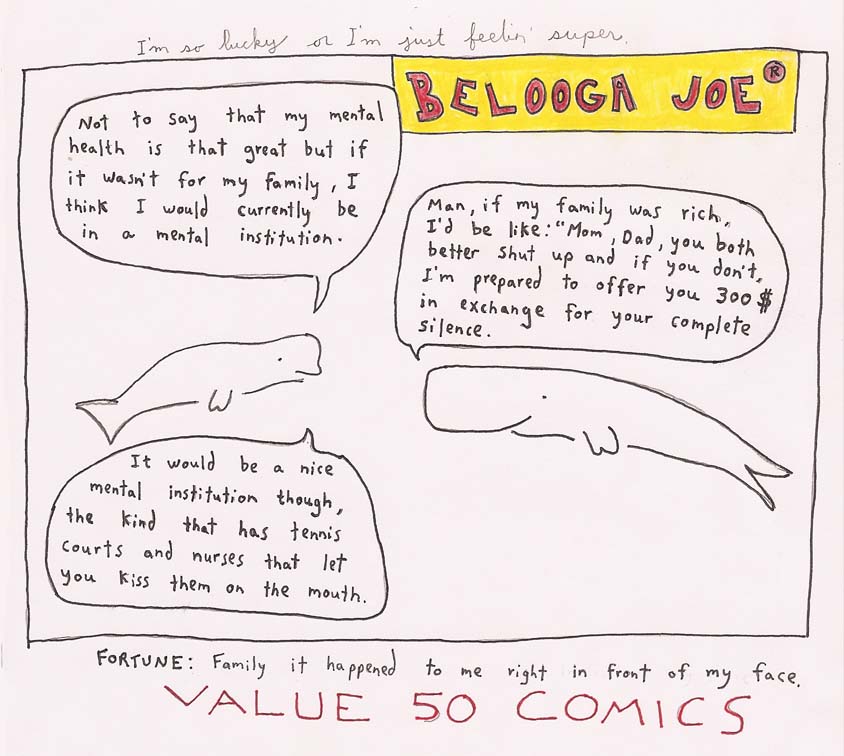 I'm so lucky or I'm just feelin' super.
BELOOGA JOE®
Not to say that my mental
health is that great but if
it wasn't for my family, I
think I would currently be
in a mental institution.
Man, if my family was rich,
I'd be like: "Mom, Dad, you both
better shut up and if you don't,
I'm prepared to offer you 300$
in exchange for your complete
silence.
It would be a nice
mental institution though,
the kind that has tennis
courts and nurses that let
you kiss them on the mouth.
FORTUNE: Family it happened to me right in front of my face.
VALUE 50 COMICS